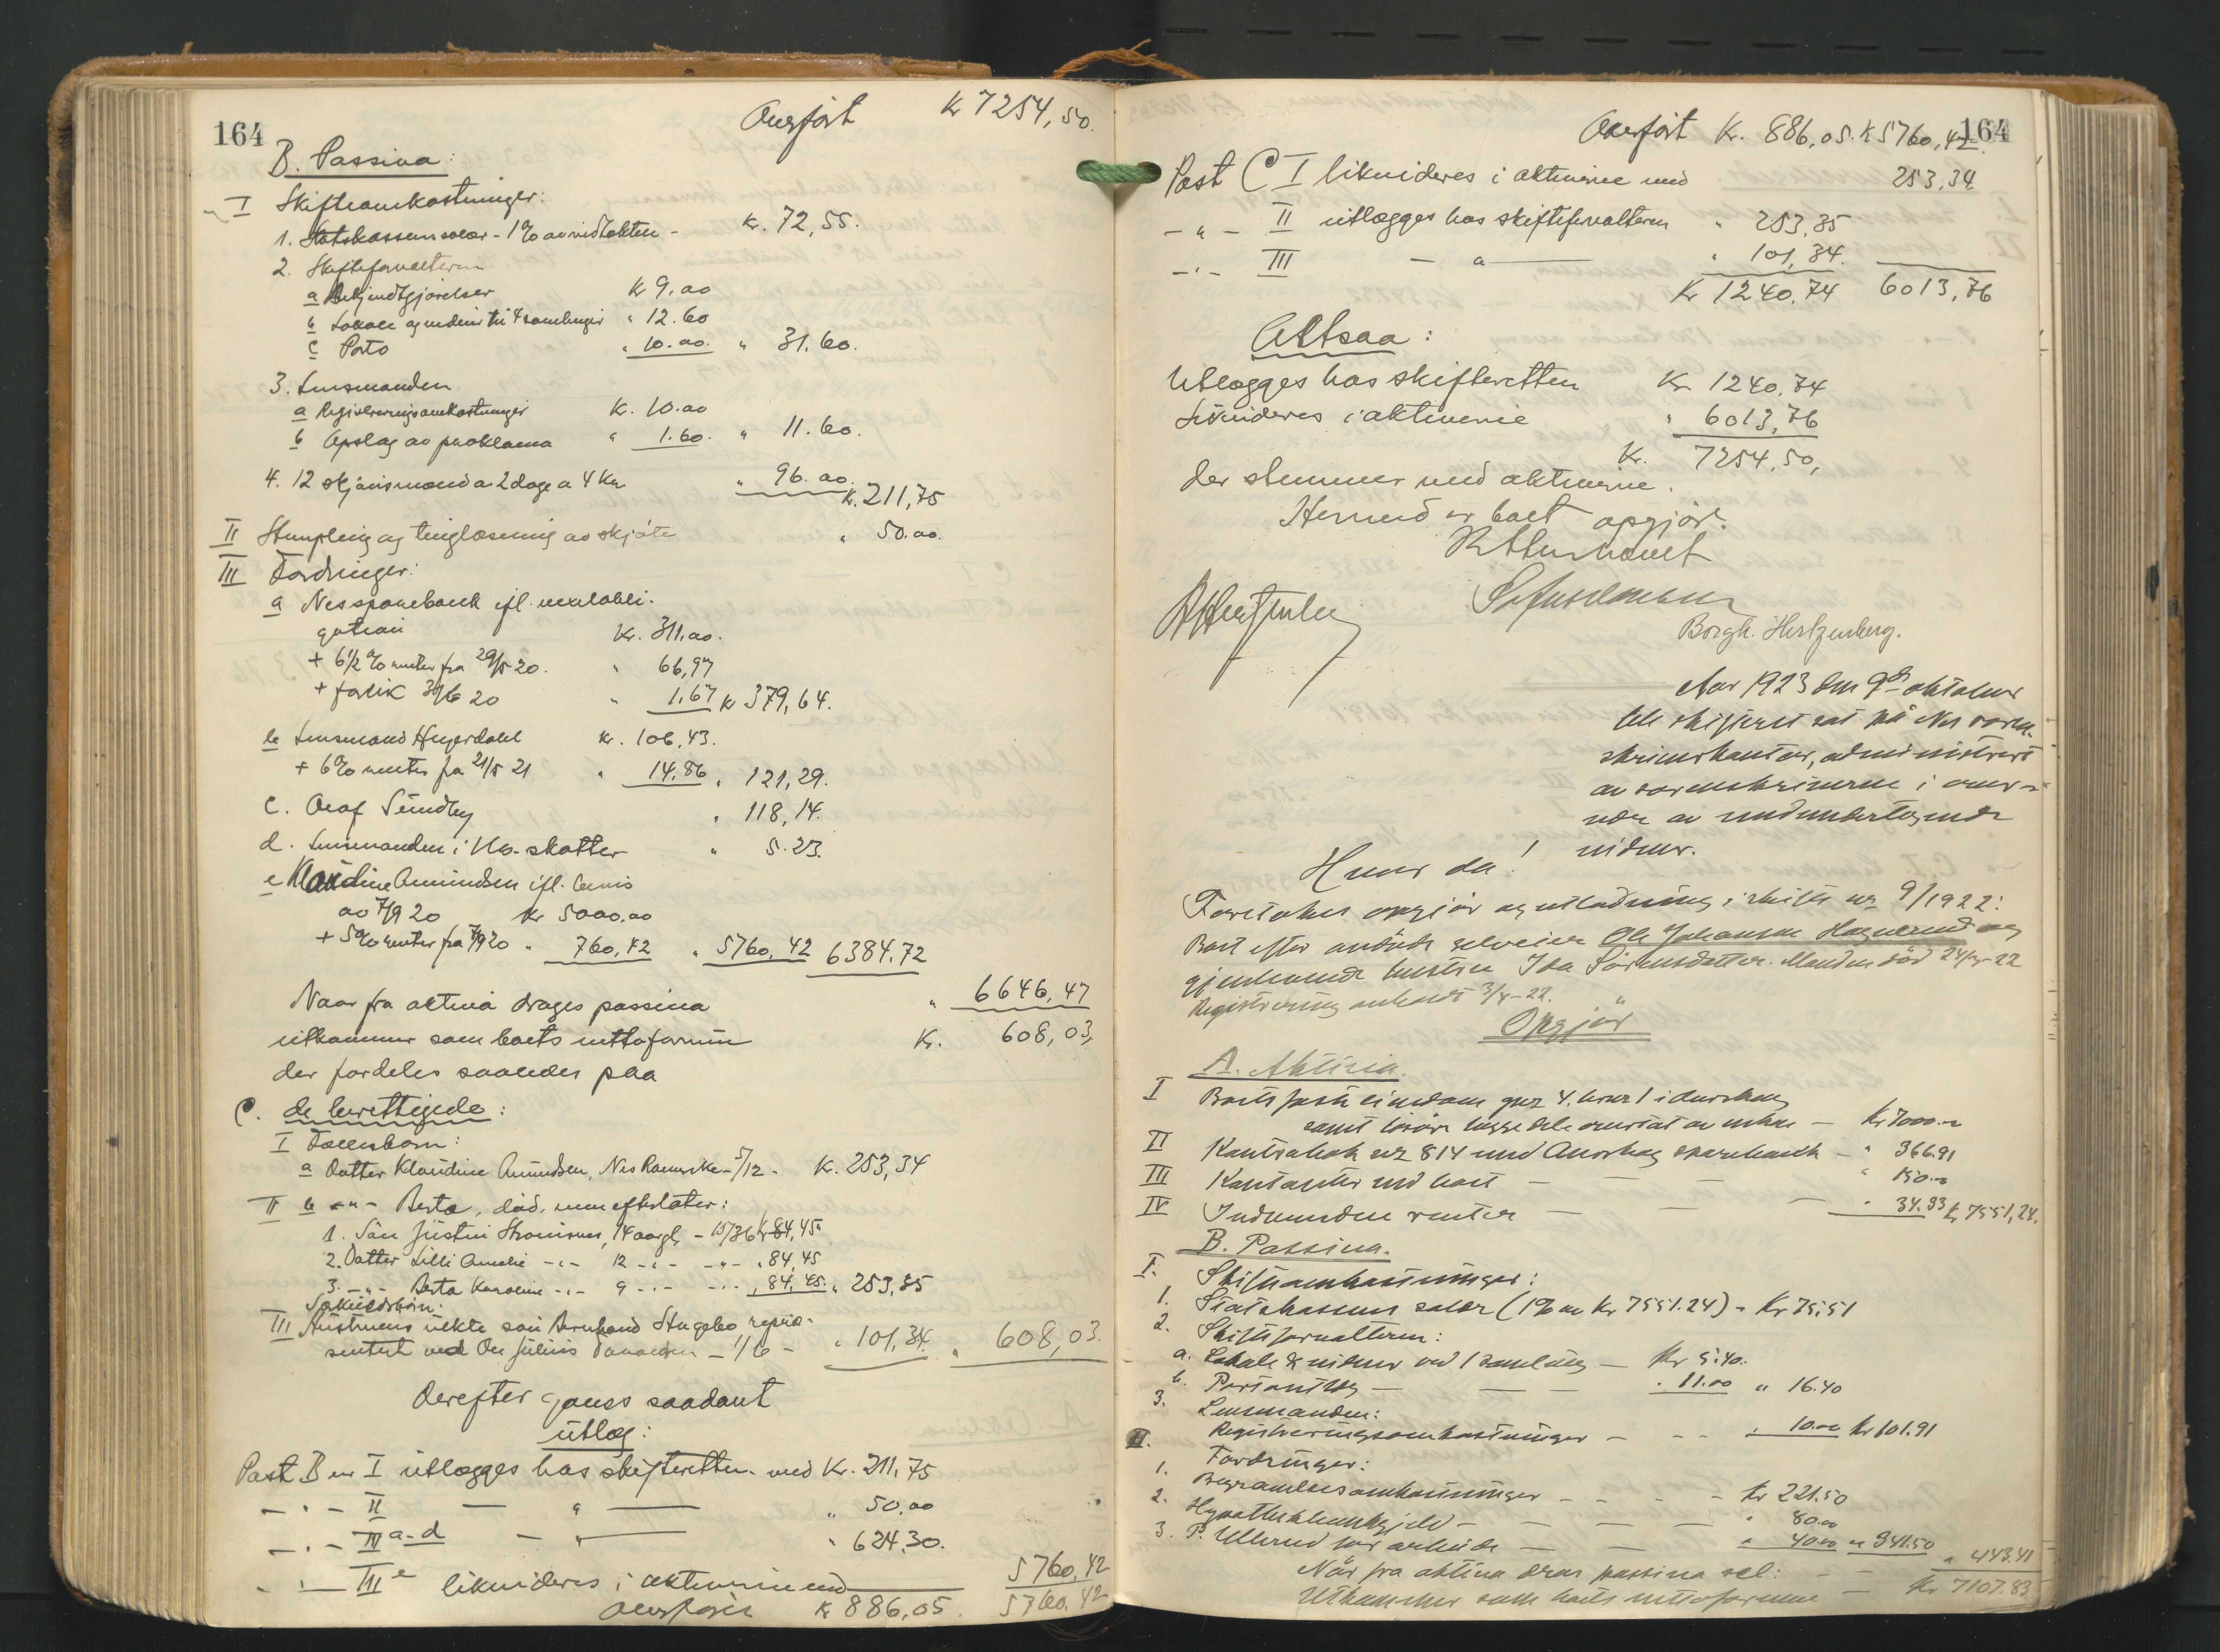 164
Overført Kr 7254,50.
B. Passiva:
I Skifteomkostninger:
1. Statskassen salær - 1% av indtekten - Kr. 72,55.
2. Skifteforvalteren
a Bekjendtgjørelser Kr 9.00
b Lokale og vidner til 4 samlinger " 12.60
c Porto " 10.00. " 31.60.
3. Lensmanden
a Registreringsomkostninger Kr. 10.00
b Opslag av proklama " 1.60. " 11.60.
4. 12 skjønsmænd a 2 dage a 4 Kr " 96.00.
Kr. 211,75
II Stempling og tinglæsning av skjøte " 50.00.
III Fordringer:
a Nes sparebank ifl. vexelobli-
gation Kr. 311.00.
+ 6 1/2 % renter fra 29/5 20. " 66,97
+ 30/6 20 " 1.67 Kr 379,64.
b Lensmand Kr. 106,43.
+ 6% renter fra 21/5 21 " 14.86 " 121,29.
c. Olaf Sundby " 118,14.
d. Lensmanden i No. skatter " 5.23.
e Klaudine Amundsen ifl. bevis
av 7/9 20 Kr 5000.00
+ 5% renter fra 7/9 20 " 760,42 " 5760,42 6384.72
Naar fra aktiva drages passiva " 6646,47
utkommer som boets nettoformue Kr. 608,03,
der fordeles saaledes paa
C. de berettigede:
I Fællesbarn:
a Datter Klaudine Amundsen, Nes Romerike - 5/12 - Kr. 253,34
II b -"- Berta, død, men efterlater:
1. Søn Justin, 14 aar gl. - 15/36 Kr 84,45
2. Datter Lilli Amalie -"- 12 -"- -"- " 84,45
3. -"- Berta Karoline -"- 9 -"- -"- " 84,45. " 253,35
Særkuldsbarn:
III Hustruens uekte søn Bernhard Stugebo repræ-
sentert ved Ole Julius - 1/6 - " 101,34. " 608,03.
Derefter gjøres saadant
utlæg:
Post B I utlægges hos skifteretten med Kr. 211,75
- " - II - " - " 50,00
- " - III a-d - " - " 624.30.
- " - III e likvideres i aktiverne med 5760,42
overføres Kr 886,05. 5760,42
164
Overført Kr. 886,05. Kr 5760,42.
Post C I likvideres i aktiverne med 253,34
- " - II utlægges hos skifteforvalteren " 253,35
- " - III - " - " 101,34.
Kr 1240,74 6013,76
Altsaa:
Utlægges hos skifteretten Kr. 1240,74
Likvideres i aktiverne " 6013,76
Kr. 7254,50,
der stemmer med aktiverne.
Hermed er boet opgjort.
Borgh. Hertzenberg.
Aar 1923 den 9de oktober
ble skifteret sat på Nes soren-
skriverkontor, administrert
av sorenskriveren i over-
vær av medundertegnede
vidner.
Hvor da!
Foretokes opgjør og utlodning i skifte nr 9/1922:
Boet efter avdøde selveier Ole Johansen og
gjenlevende hustru Ida Sørensdatter. Manden død
Registrering avholdt 3/4-22.
Opgjør
A. Aktiva.
I Boets faste eiendom gnr 4. brnr 1 i Aurskog
samt løsøre overtat av enken - Kr 7000.-
II Kontrabok nr 814 med Aurskog sparebank - " 366.91
III Kontanter ved boet - - - " 150.-
IV Indvundne renter - - - " 34.33 Kr 7551,24.
B. Passiva.
I. Skifteomkostninger:
1. Statskassens salær (1% av Kr 7551.24) - Kr 75,51
2. Skifteforvalteren:
a. Lokale & vidner ved 1 samling - Kr 5.40.
b. Portoutlæg - - - " 11.00 " 16.40
3. Lensmanden:
Registreringsomkostninger - - - " 10.00 Kr 101.91
II. Fordringer:
1. Begravelsesomkostninger - - - Kr 221.50
2. Hypotekbankgjeld - - - - " 80.00
3. P. Ullerud for arbeide - - " 40.00 " 341.50 " 443.41
Når fra aktiva dras passiva vel: - -
Utkommer som boets nettoformue - Kr 7107.83